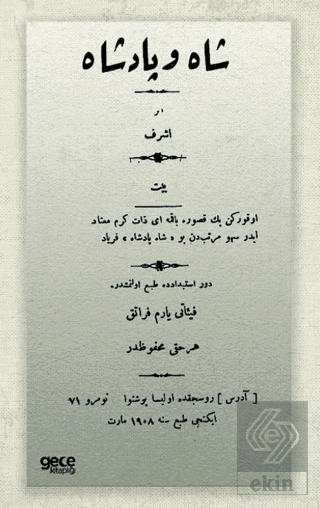 شاه و پادشاه
اثر
اشرف
بیت
اوقورکن پك قصوره باقمه ای ذات کرم معتاد
ایدر سهو مرتب‌دن بو « شاه پادشاه » فریاد
دور استبدادده طبع اولنمشدر.
فیئاتی یارم فرانقدر
هر حقی محفوظدر
[ آدرس ] روسجقده اولیسا پوشتنوا نومرو ٧١
ایکنجی طبع سنه ١٩٠٨ مارت
gece
kitaplığı
ekin